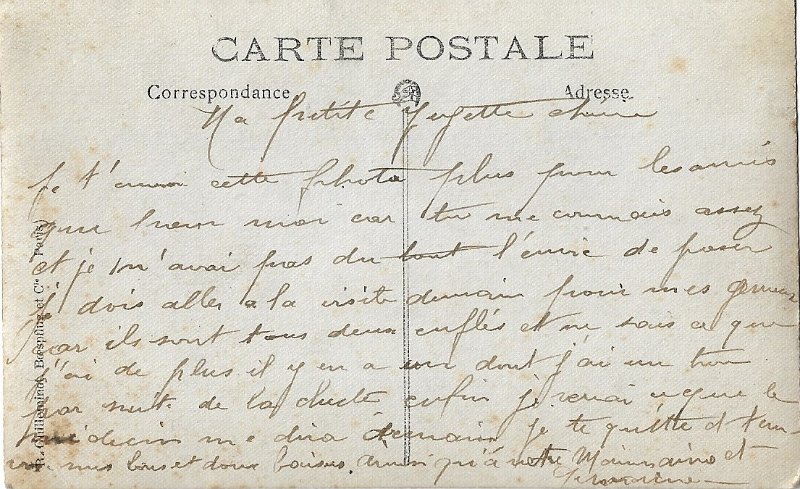 CARTE POSTALE
Correspondance
Adresse
Ma petite chérie
Je t'envoi cette photo plus pour les amis
que pour moi car tu me connais assez
et je n'avai pas du tout l'envie de poser
j dois aller a la visite demain pour mes genoux
car ils sont tous deux enflés et ne sais ce que
j'ai de plus il y en a un dont j'ai un trou
par suite de la chute enfin je verai ce que le
médecin me dira demain je te quitte d t'en
mes bons et doux baisers ainsi qu'à notre et
R. Guilleminot, Bœspflug et Cie Paris